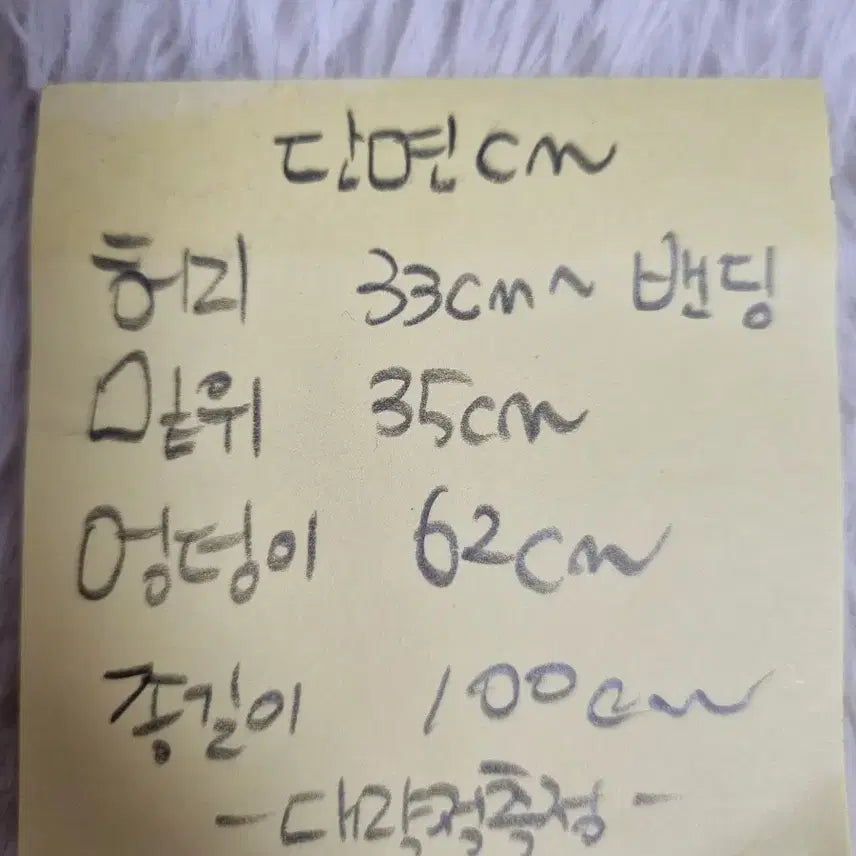 단면cm
허리 33cm~ 밴딩
밑위 35cm
엉덩이 62cm
총길이 100cm
-대략적측정-